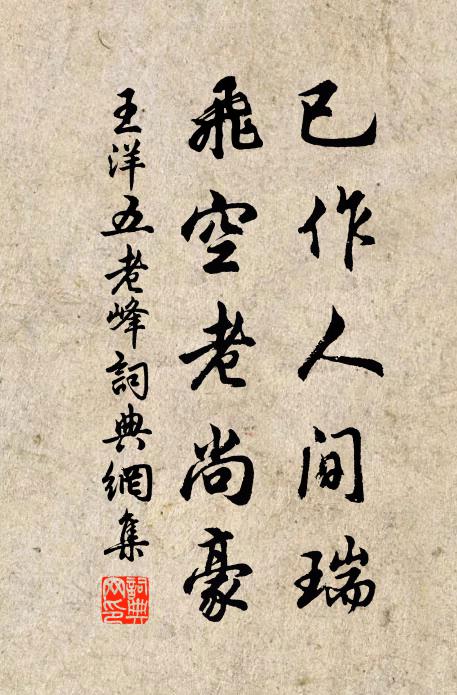 已作人间瑞
飛空老尚豪
王洋五老峰詞典網集
詞典網印